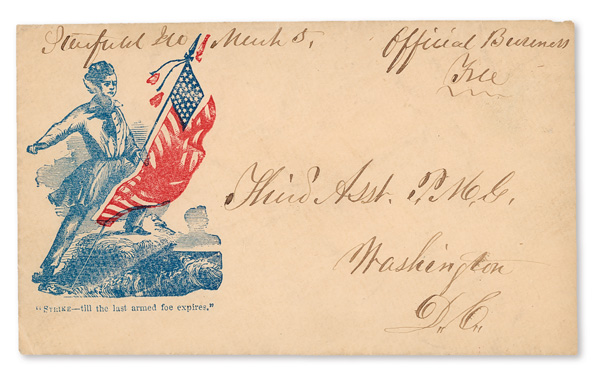 March 5.
Official Business
Free
Third Asst. P. M. G.
Washington
D. C.
"STRIKE—till the last armed foe expires."